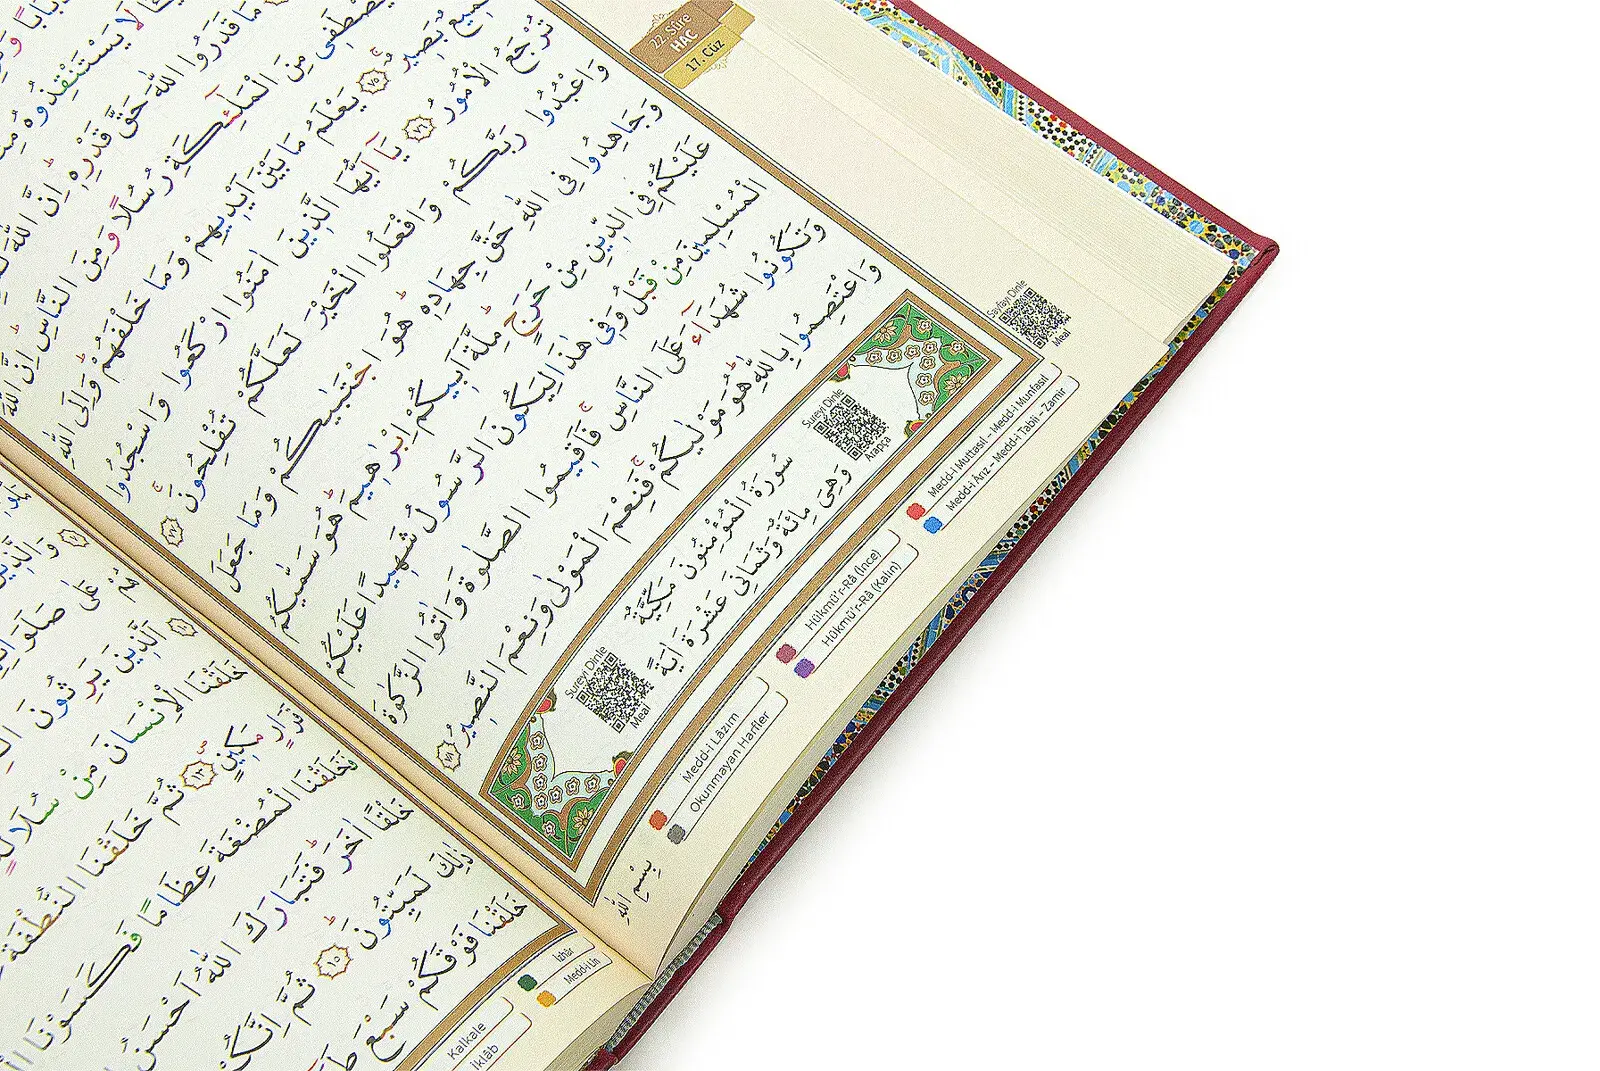 22. Sûre
HAC
17. Cüz
لَا يَسْتَنْقِذُوهُ
مَا قَدَرُوا اللّٰهَ حَقَّ قَدْرِهٖ اِنَّ اللّٰهَ
يَصْطَفٖى مِنَ الْمَلٰٓئِكَةِ رُسُلًا وَمِنَ النَّاسِ اِنَّ اللّٰهَ
سَمٖيعٌ بَصٖيرٌ ﴿٧٥﴾ يَعْلَمُ مَا بَيْنَ اَيْدٖيهِمْ وَمَا خَلْفَهُمْ وَاِلَى اللّٰهِ
تُرْجَعُ الْاُمُورُ ﴿٧٦﴾ يَٓا اَيُّهَا الَّذٖينَ اٰمَنُوا ارْكَعُوا وَاسْجُدُوا
وَاعْبُدُوا رَبَّكُمْ وَافْعَلُوا الْخَيْرَ لَعَلَّكُمْ تُفْلِحُونَ ﴿٧٧﴾
وَجَاهِدُوا فِى اللّٰهِ حَقَّ جِهَادِهٖ هُوَ اجْتَبٰيكُمْ وَمَا جَعَلَ
عَلَيْكُمْ فِى الدّٖينِ مِنْ حَرَجٍ مِلَّةَ اَبٖيكُمْ اِبْرٰهٖيمَ هُوَ سَمّٰيكُمُ
الْمُسْلِمٖينَ مِنْ قَبْلُ وَفٖى هٰذَا لِيَكُونَ الرَّسُولُ شَهٖيدًا عَلَيْكُمْ
وَتَكُونُوا شُهَدَٓاءَ عَلَى النَّاسِ فَاَقٖيمُوا الصَّلٰوةَ وَاٰتُوا الزَّكٰوةَ
وَاعْتَصِمُوا بِاللّٰهِ هُوَ مَوْلٰيكُمْ فَنِعْمَ الْمَوْلٰى وَنِعْمَ النَّصٖيرُ ﴿٧٨﴾
Sureyi Dinle
Arapça
سُورَةُ الْمُؤْمِنُونَ مَكِّيَّةٌ
وَهِىَ مِائَةٌ وَثَمَانِىَ عَشْرَةَ اٰيَةً
Sureyi Dinle
Meal
Sayfayı Dinle
Meal
Medd-i Muttasıl - Medd-i Munfasıl
Medd-i Arız - Medd-i Tabii - Zamir
Hükmü'r-Râ (İnce)
Hükmü'r-Râ (Kalın)
Medd-i Lâzım
Okunmayan Harfler
بِسْمِ اللّٰهِ
وَالَّذٖينَ
عَلٰى صَلَوَاتِهِمْ
الَّذٖينَ يَرِثُونَ
خَلَقْنَا الْاِنْسَانَ مِنْ سُلَالَةٍ
قَرَارٍ مَكٖينٍ ﴿١٣﴾ ثُمَّ خَلَقْنَا النُّطْفَةَ
فَخَلَقْنَا الْمُضْغَةَ عِظَامًا فَكَسَوْنَا
خَلْقًا اٰخَرَ فَتَبَارَكَ اللّٰهُ اَحْسَنُ
ذٰلِكَ لَمَيِّتُونَ ﴿١٥﴾ ثُمَّ اِنَّكُمْ
خَلَقْنَا فَوْقَكُمْ سَبْعَ
İzhâr
Medd-i Lîn
Kalkale
İklâb